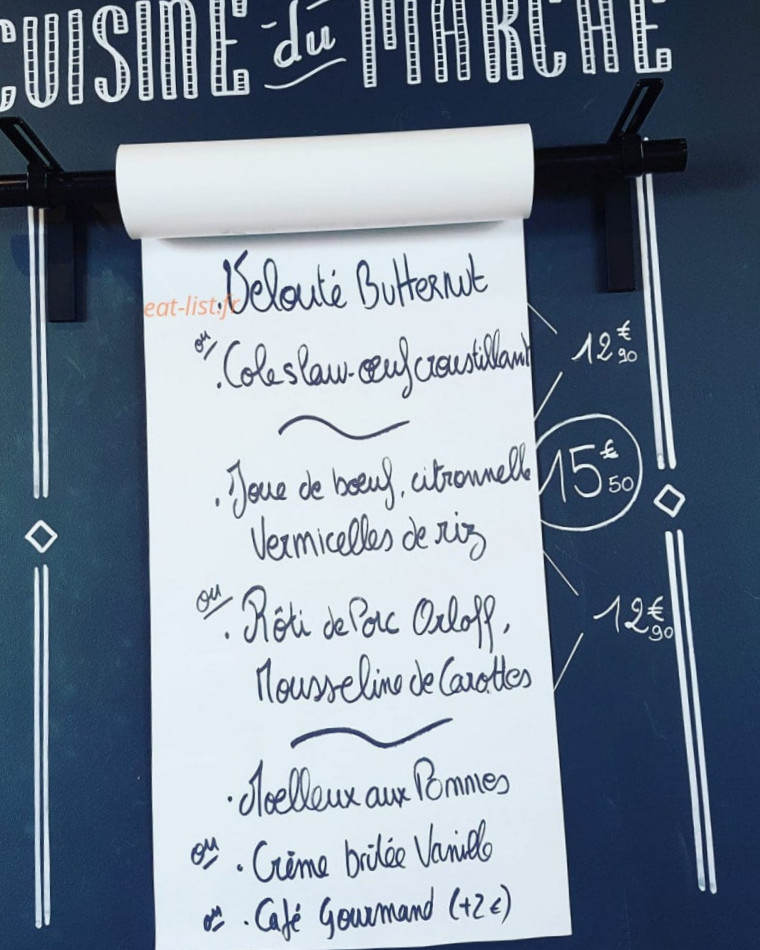 CUISINE du MARCHE
. Velouté Butternut
eat-list.fr
ou
. Coleslaw-œuf croustillant
12€90
. Joue de bœuf, citronnelle
15€50
Vermicelles de riz
ou
. Rôti de Porc Orloff,
12€90
Mousseline de Carottes
. Moelleux aux Pommes
ou . Crème brûlée Vanille
ou . Café Gourmand (+2€)